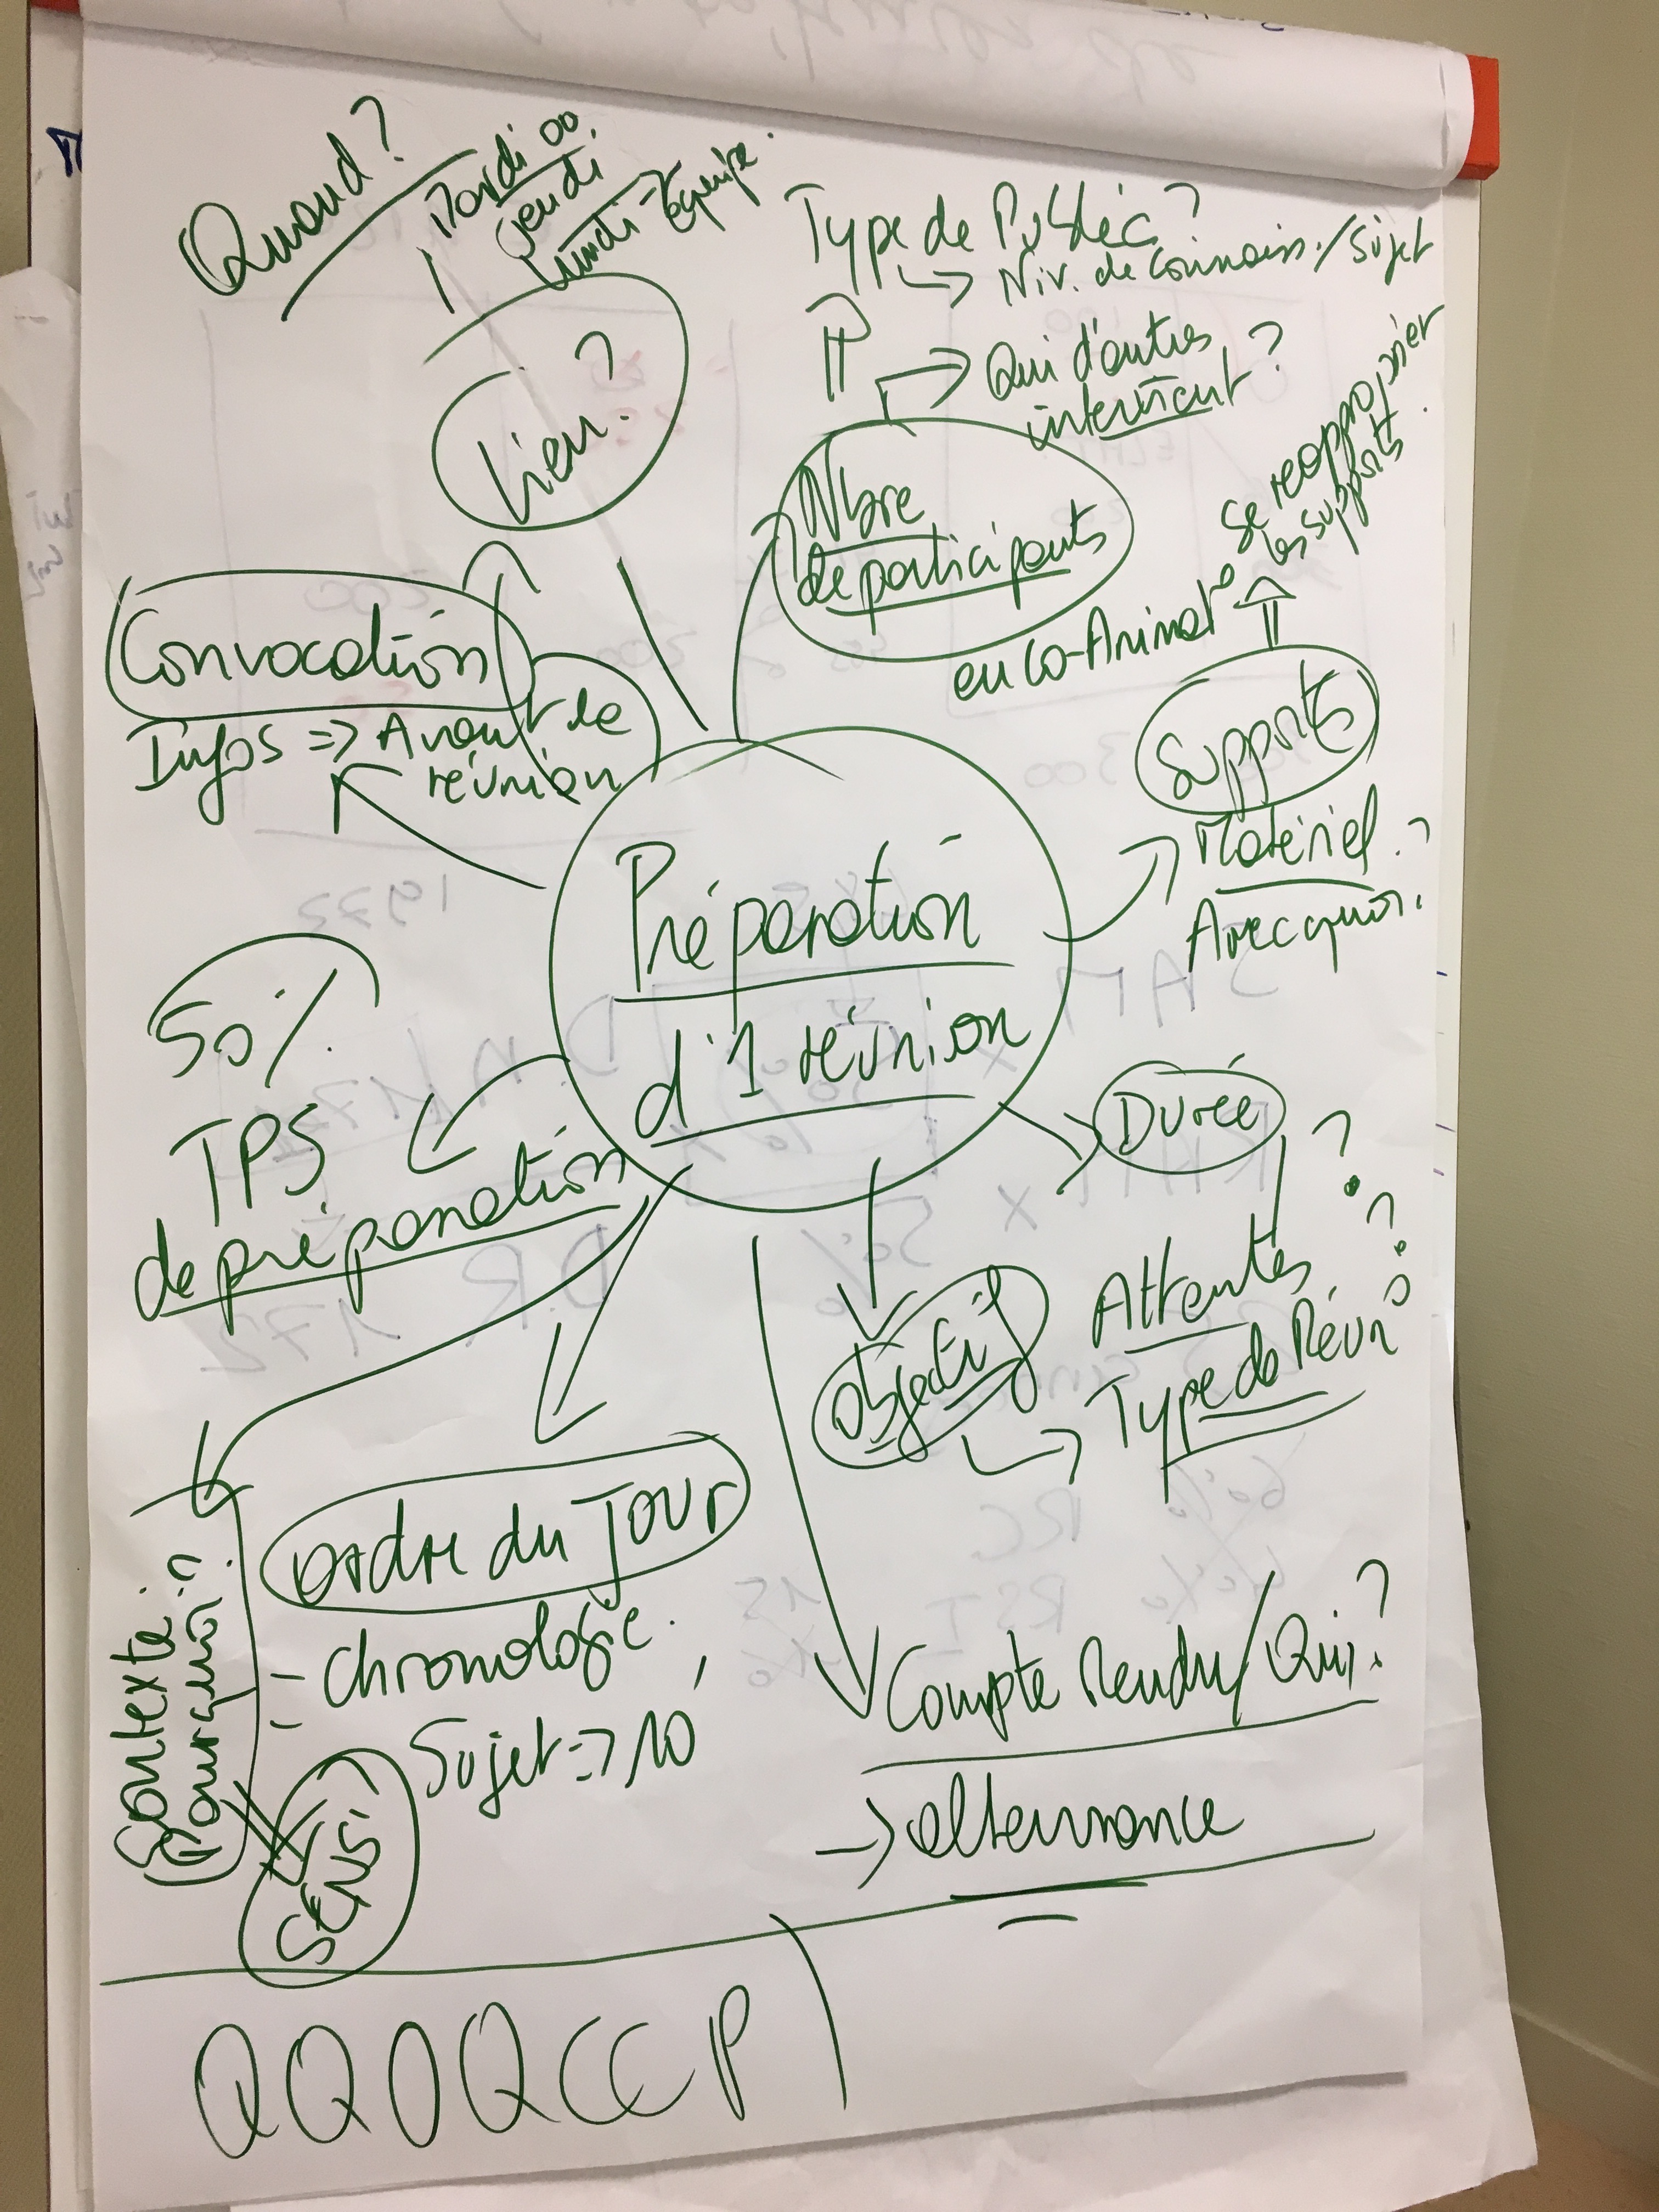 Quand ?
Mardi ou
jeudi
Lundi → Equipe.
Lieu ?
Type de Public ?
↳ Niv. de connaiss. / Sujet
→ Qui d'autres
intervient ?
Nbre
de participants
en co-Animat°
se réapproprier
les supports.
Supports
Matériel ?
Avec quoi ?
Convocation
Infos => Avant la
réunion
Préparation
d'1 réunion
50%
TPS
de préparation
Durée
?
Objectif
Attentes ?
→ Type de Réun° ?
Ordre du JOUR
- Chronologie.
- Sujet => 10'
Contexte :
(Pourquoi ?)
SENS
Compte Rendu / Qui ?
→ alternance
QQOQCCP